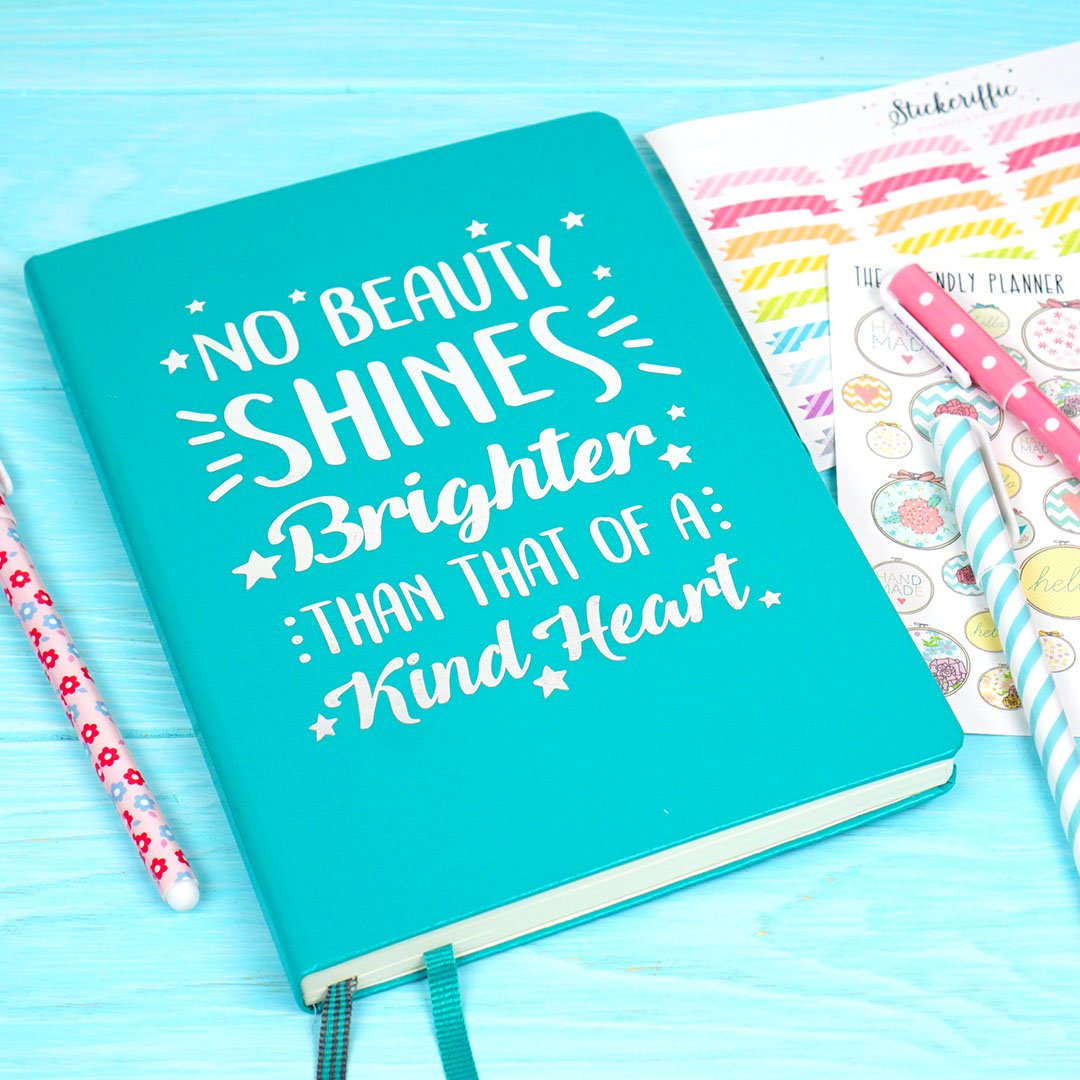 NO BEAUTY
SHINES
Brighter
THAN THAT OF A
Kind Heart
Stickeriffic
THE
NDLY PLANNER
HAND
MADE
hello
HAND
MADE
hello